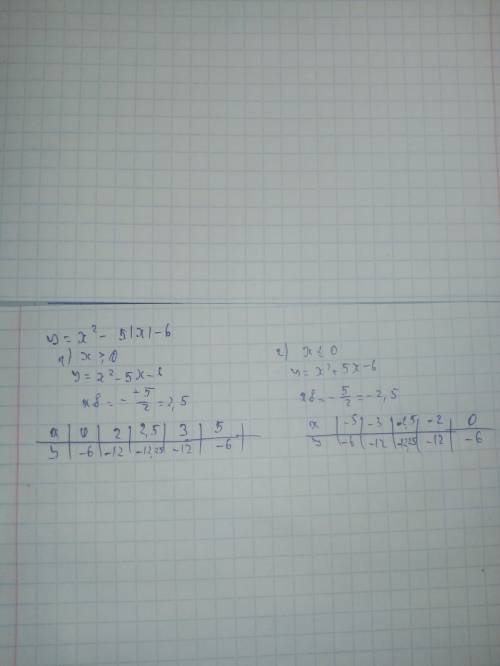 y = x² - 5|x| - 6
1) x ≥ 0
y = x² - 5x - 6
xв = - -5/2 = 2,5
x | 0 | 2 | 2,5 | 3 | 5
y | -6 | -12 | -12,25 | -12 | -6
2) x < 0
y = x² + 5x - 6
xв = - 5/2 = -2,5
x | -5 | -3 | -2,5 | -2 | 0
y | -6 | -12 | -12,25 | -12 | -6